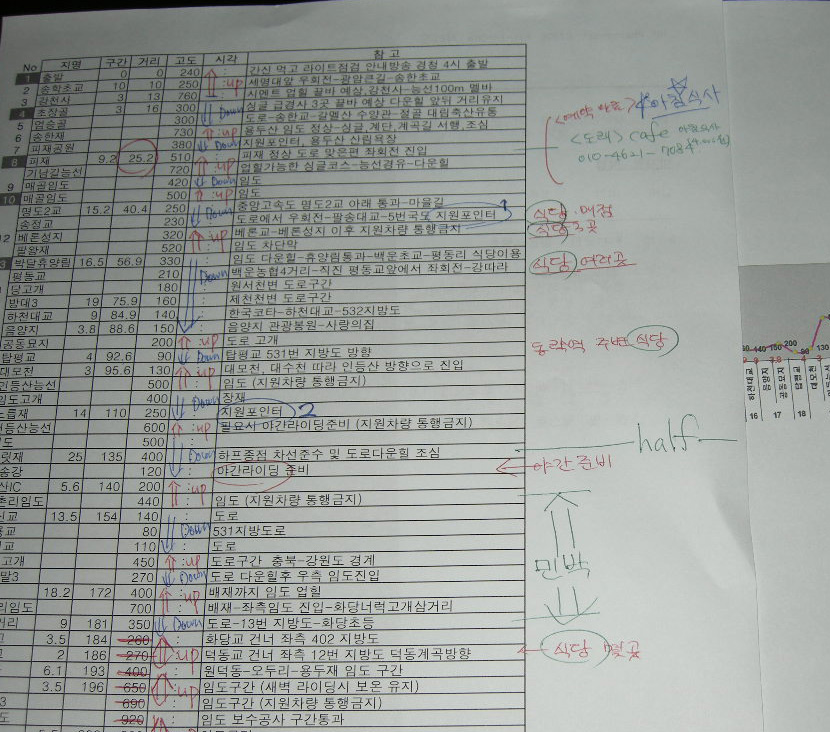 No 지명 구간 거리 고도 시각 참고
1 출발 0 0 240 : 간식 먹고 라이트점검 안내방송 경청 4시 출발
2 송학초교 10 10 250 :up 세명대앞 우회전-광암큰길-송한초교
3 감천사 3 13 760 시멘트 업힐 끌바 예상,강천사-능선100m 멜바
4 초장골 3 16 300 싱글 급경사 3곳 끌바 예상 다운힐 앞뒤 거리유지
5 엄송골 300 Down 도로-송한교-갈멜산 수양관-절골 대림축산유통
6 송한재 730 :up 용두산 임도 정상-싱글,계단,계곡길 서행,조심
7 피재공원 380 Down 지원포인터, 용두산 산림욕장
8 피재 9.2 25.2 510 :up 피재 정상 도로 맞은편 좌회전 진입
기남길능선 720 업힐가능한 싱글코스-능선경유-다운힐
9 매골임도 420 Down 임도
10 매골임도 500 :up 임도
명도2교 15.2 40.4 250 Down 중앙고속도 명도2교 아래 통과-마을길
송정교 230 도로에서 우회전-팔송대교-5번국도 지원포인터 1
12 베론성지 320 :up 베론교-베론성지 이후 지원차량 통행금지
팔왕재 520 : 임도 차단막
3 박달휴양림 16.5 56.9 330 임도 다운힐-휴양림통과-백운초교-평동리 식당이용
평동교 210 Down 백운농협4거리-직진 평동교앞에서 좌회전-강따라
당고개 180 : 원서천변 도로구간
방대3 19 75.9 160 : 제천천변 도로구간
하천대교 9 84.9 140 : 한국코타-하천대교-532지방도
음양지 3.8 88.6 150 : 음양지 관광봉원-사랑의집
공동묘지 200 :up 도로 고개
탑평교 4 92.6 90 Down 탑평교 531번 지방도 방향
대모천 3 95.6 130 :up 대모천, 대수천 따라 인등산 방향으로 진입
인등산능선 500 : 임도 (지원차량 통행금지)
임도고개 400 Down 장재
느릅재 14 110 250 지원포인터 2
인등산능선 600 :up 필요시 야간라이딩준비 (지원차량 통행금지)
도 500 :
릿재 25 135 400 Down 하프종점 차선준수 및 도로다운힐 조심
송강 120 : 야간라이딩 준비
산IC 5.6 140 200 :up
촌리임도 440 : 임도 (지원차량 통행금지)
신교 13.5 154 140 : 도로
용교 80 Down 531지방도로
교 110 : 도로
고개 450 :up 도로구간 충북-강원도 경계
말3 270 Down 도로 다운힐후 우측 임도진입
18.2 172 400 :up 배재까지 임도 업힐
리임도 700 배재-좌측임도 진입-화당너럭고개삼거리
거리 9 181 350 Down 도로-13번 지방도-화당초등
교 3.5 184 260 : 화당교 건너 좌측 402 지방도
교 2 186 270 :up 덕동교 건너 좌측 12번 지방도 덕동계곡방향
6.1 193 400 : 원덕동-오두리-용두재 임도 구간
3.5 196 650 :up 임도구간 (새벽 라이딩시 보온 유지)
3 690 : 임도구간 (지원차량 통행금지)
도 920 : 임도 보수공사 구간통과
<예약 완료> 아침식사
<도래> cafe
010-4621-7084
식당·매점
식당 3곳
식당 여러곳
동락역 주변 식당
half
야간준비
민박
식당 몇곳
140 150 200 90 130
하천대교 음양지 공동묘지 탑평교 대모천
16 17 18